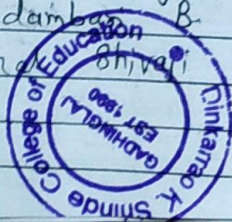 dambar B
Shivaji
Dinkarrao K. Shinde College of Education
GADHINGLAJ
EST 1990